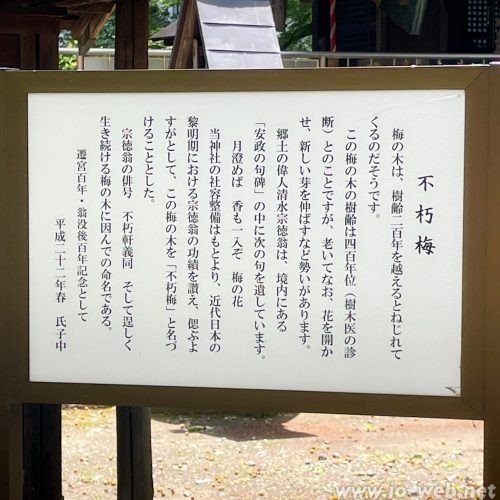 不朽梅
梅の木は、樹齢二百年を越えるとねじれて
くるのだそうです。
この梅の木の樹齢は四百年位（樹木医の診
断）とのことですが、老いてなお、花を開か
せ、新しい芽を伸ばすなど勢いがあります。
郷土の偉人清水宗徳翁は、境内にある
「安政の句碑」の中に次の句を遺しています。
月澄めば　香も一入ぞ　梅の花
当神社の社容整備はもとより、近代日本の
黎明期における宗徳翁の功績を讃え、偲ぶよ
すがとして、この梅の木を「不朽梅」と名づ
けることとした。
宗徳翁の俳号　不朽軒義同　そして逞しく
生き続ける梅の木に因んでの命名である。
遷宮百年・翁没後百年記念として
平成二十二年春　氏子中
www.jo-well.net